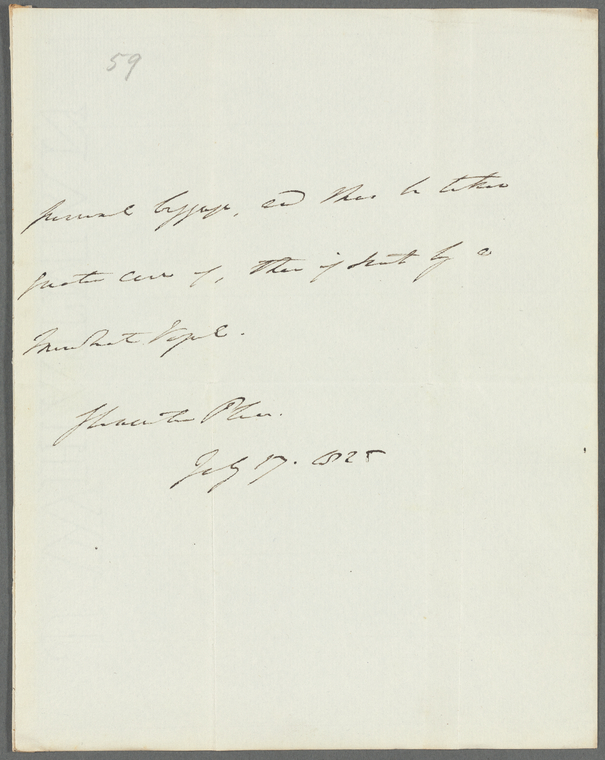 59
personal baggage, and thus be taken
greater care of, than if sent by a
Merchant Vessel.
Gloucester Place.
July 17. 1825